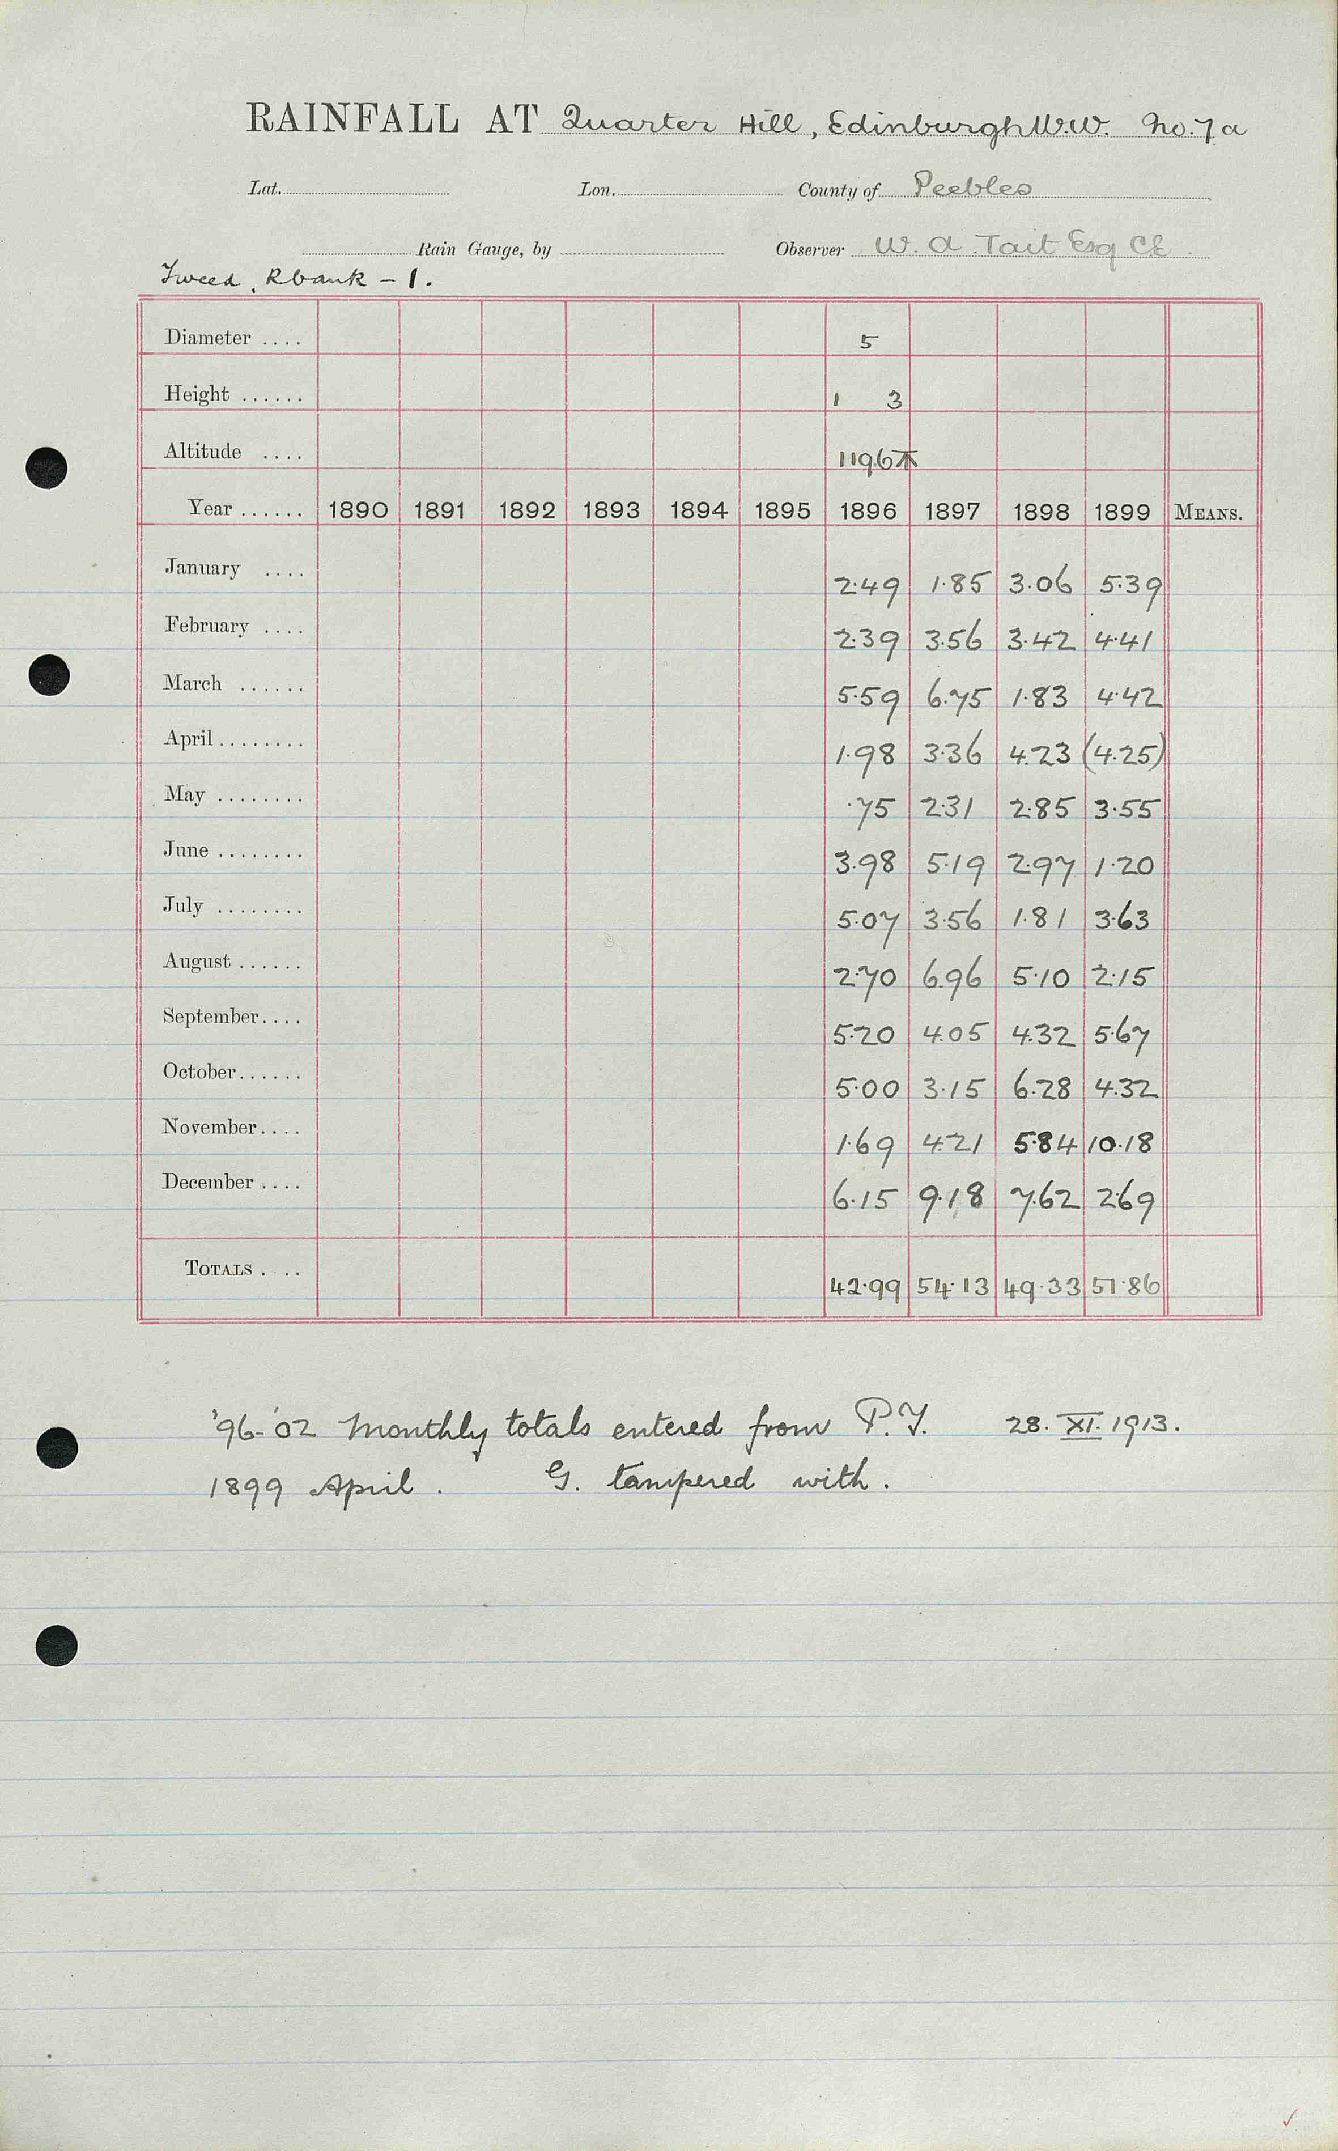 RAINFALL AT Quarter Hill, Edinburgh W.W. No. 7a
Lat. Lon. County of Peebles
Rain Gauge, by Observer W. A. Tait Esq CE.
Tweed, Rbank - 1.
Diameter .... 5
Height ...... 1 3
Altitude .... 1196
Year ...... 1890 1891 1892 1893 1894 1895 1896 1897 1898 1899 MEANS.
January .... 2.49 1.85 3.06 5.39
February .... 2.39 3.56 3.42 4.41
March ...... 5.59 6.75 1.83 4.42
April ........ 1.98 3.36 4.23 (4.25)
May ........ .75 2.31 2.85 3.55
June ........ 3.98 5.19 2.97 1.20
July ........ 5.07 3.56 1.81 3.63
August ...... 2.70 6.96 5.10 2.15
September.... 5.20 4.05 4.32 5.67
October...... 5.00 3.15 6.28 4.32
November.... 1.69 4.21 5.84 10.18
December .... 6.15 9.18 7.62 2.69
TOTALS .... 42.99 54.13 49.33 51.86
'96-'02 Monthly totals entered from P.Y. 28. XI. 1913.
1899 April. G. tampered with.